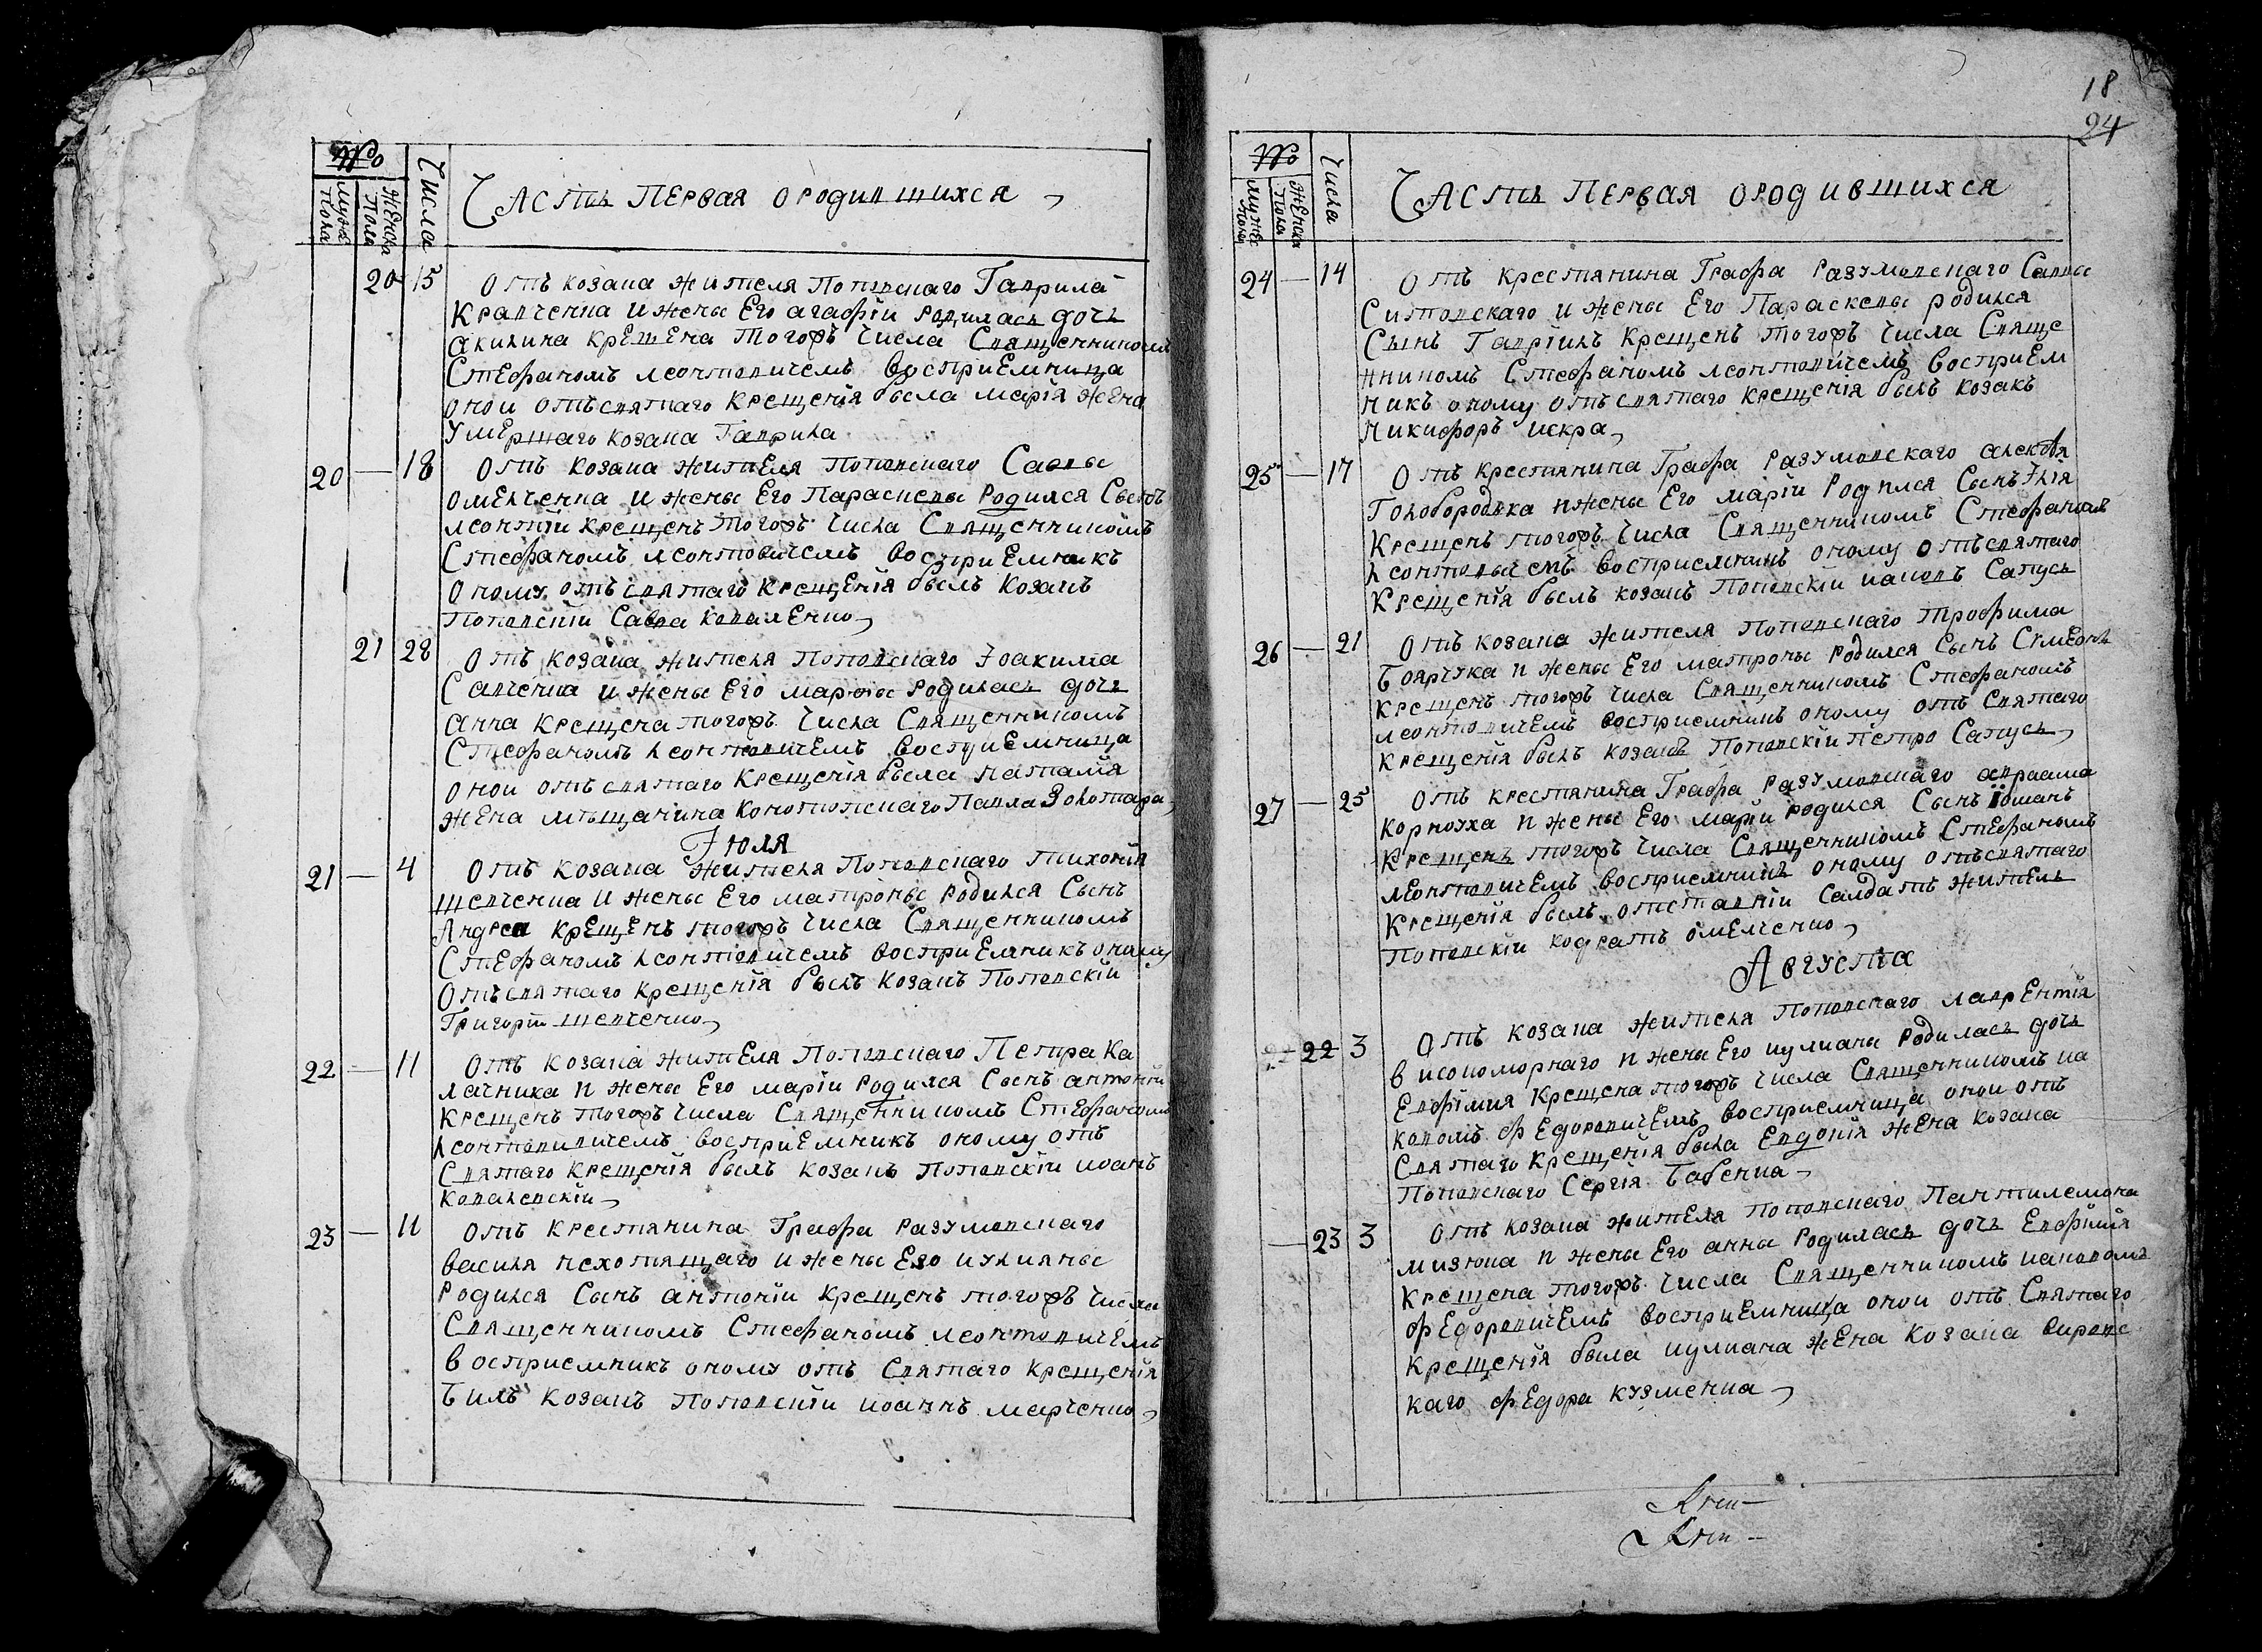 №
Мужеска Пола
Женска Пола
Числа
Часть первая о родившихся
20 15 Отъ козака жителя Поповскаго Гаврила
Кравченка и жены Его агафіи родилась дочь
акилина крещена тогожъ числа Священникомъ
Стефаномъ леонтовичемъ восприемница
онои отъ святаго крещенія была марія жена
умершаго козака Гаврила
20 — 18 Отъ козака жителя Поповскаго Саввы
омелченка и жены Его Параскевы Родился Сынъ
леонтіи крещенъ тогожъ числа Священникомъ
Стефаномъ леонтовичемъ восприемникъ
оному отъ святаго крещенія былъ козакъ
Поповскіи Савва коваленко
21 28 Отъ козака жителя Поповскаго Іоакима
Савченка и жены Его марфы родилась дочь
анна крещена тогожъ числа Священникомъ
Стефаномъ леонтовичемъ восприемница
онои отъ святаго крещенія была наталія
жена мѣщанина конотопскаго Павла Золотара
Іюля
21 — 4 Отъ козака жителя Поповскаго тихонія
шевченка и жены Его матроны родился Сынъ
Андреи крещенъ тогожъ числа Священникомъ
Стефаномъ леонтовичемъ восприемникъ оному
Отъ святаго крещенія былъ козакъ Поповскіи
Григоріи шевченко
22 — 11 Отъ козака жителя Поповскаго Петра Ка
лачника и жены Его маріи родился Сынъ антоніи
крещенъ тогожъ числа Священникомъ Стефаномъ
леонтовичемъ восприемникъ оному отъ
Святаго крещенія былъ козакъ Поповскіи иоанъ
ковалевскіи
23 — 11 Отъ крестянина Графа разумовскаго
василя нехотящаго и жены Его иулияны
Родился Сынъ антоніи крещенъ тогожъ числа
Священникомъ Стефаномъ леонтовичемъ
восприемникъ оному отъ Святаго крещенія
билъ козакъ Поповскіи иоаннъ марченко
18
24
№
Мужес Пола
Женска Пола
Числа
Часть первая о родившихся
24 — 14 Отъ крестянина Графа Разумовскаго Саввы
Ситовскаго и жены Его Параскевы родился
Сынъ Гавріилъ крещенъ тогожъ числа Свяще
нникомъ Стефаномъ леонтовичемъ восприем
никъ оному отъ святаго крещенія былъ козакъ
Никифоръ искра
25 — 17 Отъ крестянина Графа Разумовскаго алексѣя
Голобородька и жены Его маріи Родился Сынъ Ілія
Крещенъ тогожъ числа Священникомъ Стефаномъ
леонтовичемъ восприемникъ оному отъ святаго
Крещенія былъ козакъ Поповскіи иаковъ Сапусь
26 — 21 Отъ козака жителя Поповскаго трофима
Боярчука и жены Его матроны родился Сынъ Сімеонъ
крещенъ тогожъ числа Священникомъ Стефаномъ
леонтовичемъ восприемникъ оному отъ Святаго
крещенія былъ козакъ Поповскіи петро Сапусь
27 — 25 Отъ крестянина Графа Разумовскаго авраама
корноуха и жены Его маріи родился Сынъ Іоанъ
Крещенъ тогожъ числа Священникомъ Стефаномъ
леонтовичемъ восприемникъ оному отъ святаго
Крещенія былъ отставніи Салдатъ житель
поповскіи кодратъ омелченко
Августа
22 3 Отъ козака жителя Поповскаго лаврентія
висоморнаго и жены Его иулианы Родилась дочь
Евфімия крещена тогожъ числа Священникомъ иа
ковомъ федоровичемъ восприемница онои отъ
Святаго крещенія была Евдокія жена козака
Поповскаго Сергія Бабенка
— 23 3 Отъ козака жителя Поповскаго Пантилемона
мизюка и жены Его анны Родилась дочь Евфімія
крещена тогожъ числа Священникомъ иаковомъ
федоровичемъ восприемница онои отъ Святаго
крещенія была иулиана жена козака
каго федора кузменка